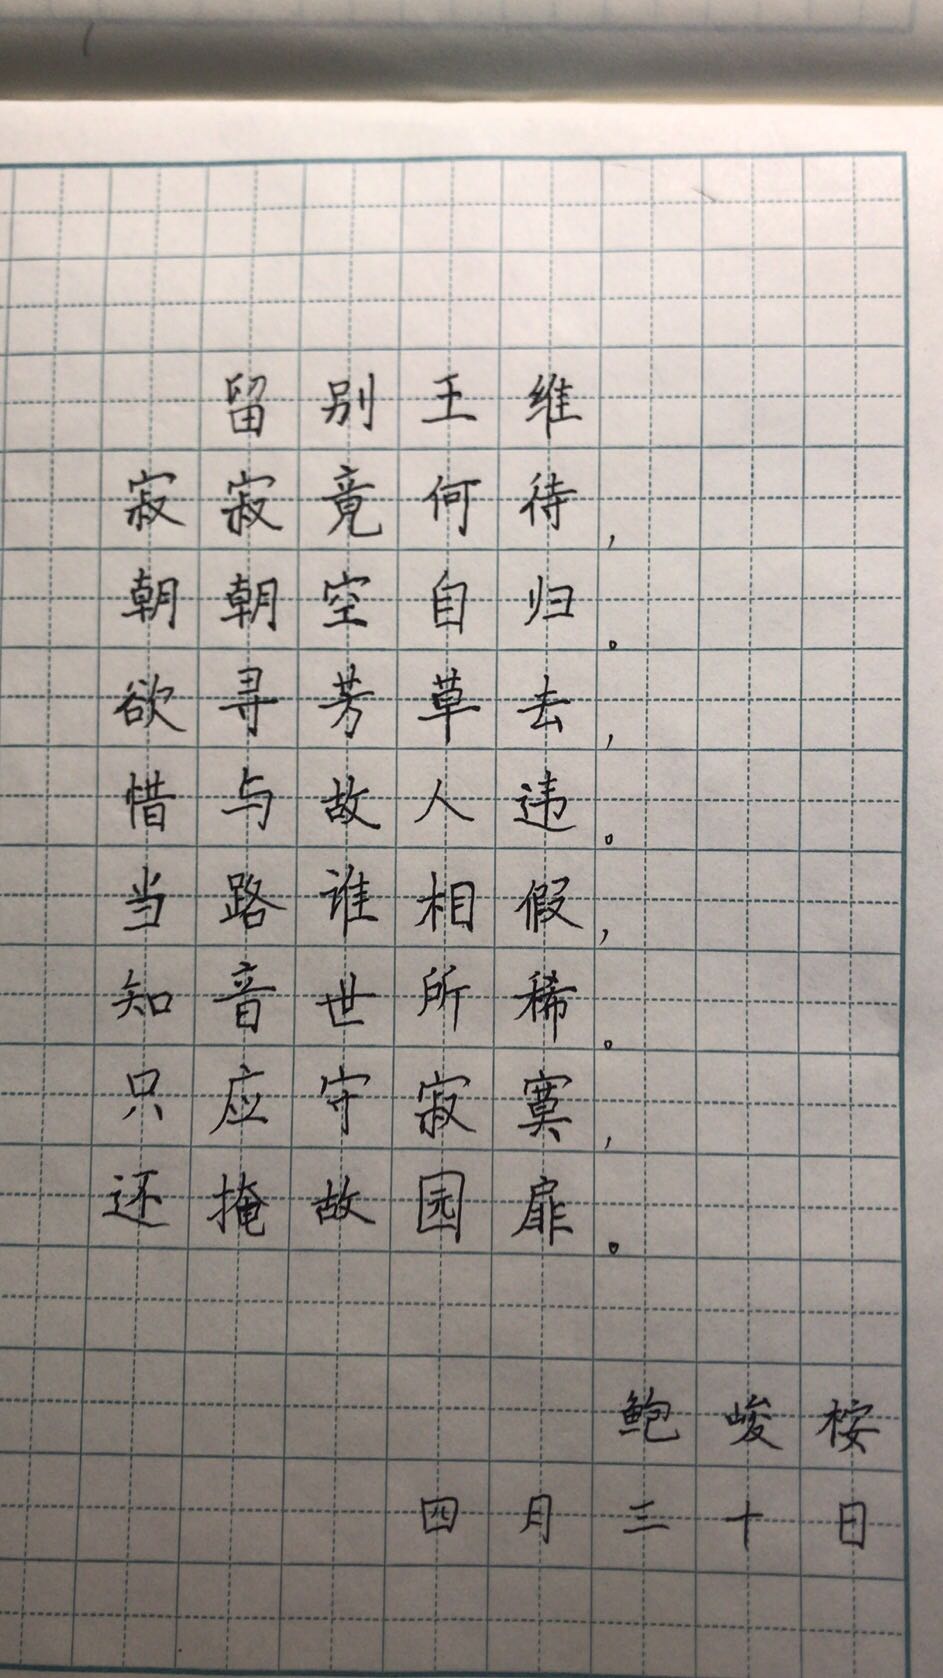 留别王维
寂寂竟何待,
朝朝空自归。
欲寻芳草去,
惜与故人违。
当路谁相假,
知音世所稀。
只应守寂寞,
还掩故园扉。
鲍峻桉
四月三十日